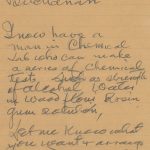 Buchanan
I now have a
man in Chemical
Lab who can make
a series of Chemical
tests, such as strength
of alcohol, Water
in Wood flour Rosin
gum solution,
Let me Know what
you want & arrange